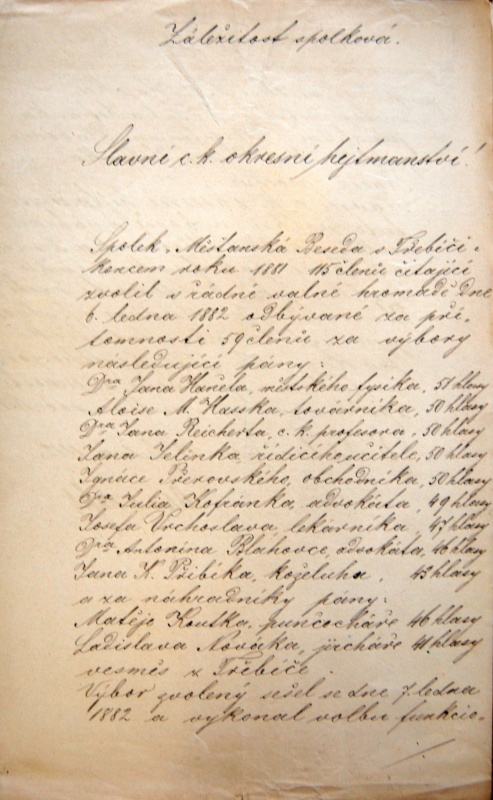 Záležitost spolková.
Slavné c. k. okresní hejtmanství!
Spolek „Měšťanská Beseda v Třebíči"
koncem roku 1881 115 členů čítající
zvolil v řádné valné hromadě dne
6. ledna 1882 odbývané za pří-
tomnosti 59 členů za výbory
následující pány:
Dra Jana Haňela, městského fysika, 51 hlasy
Aloise M. Hasska, továrníka, 50 hlasy
Dra Jana Reicherta, c. k. profesora, 50 hlasy
Jana Jelínka, řídícího učitele, 50 hlasy
Ignáce Přerovského, obchodníka, 50 hlasy
Dra Julia Kofránka, advokáta, 49 hlasy
Josefa Vrchoslava, lékárníka, 47 hlasy
Dra Antonína Blahovce, advokáta, 46 hlasy
Jana N. Přibíka, koželuha, 43 hlasy
a za náhradníky pány:
Matěje Koutka, punčocháře 46 hlasy
Ladislava Nováka, jircháře 41 hlasy
vesměs z Třebíče.
Výbor zvolený sešel se dne 7. ledna
1882 a vykonal volbu funkcio-